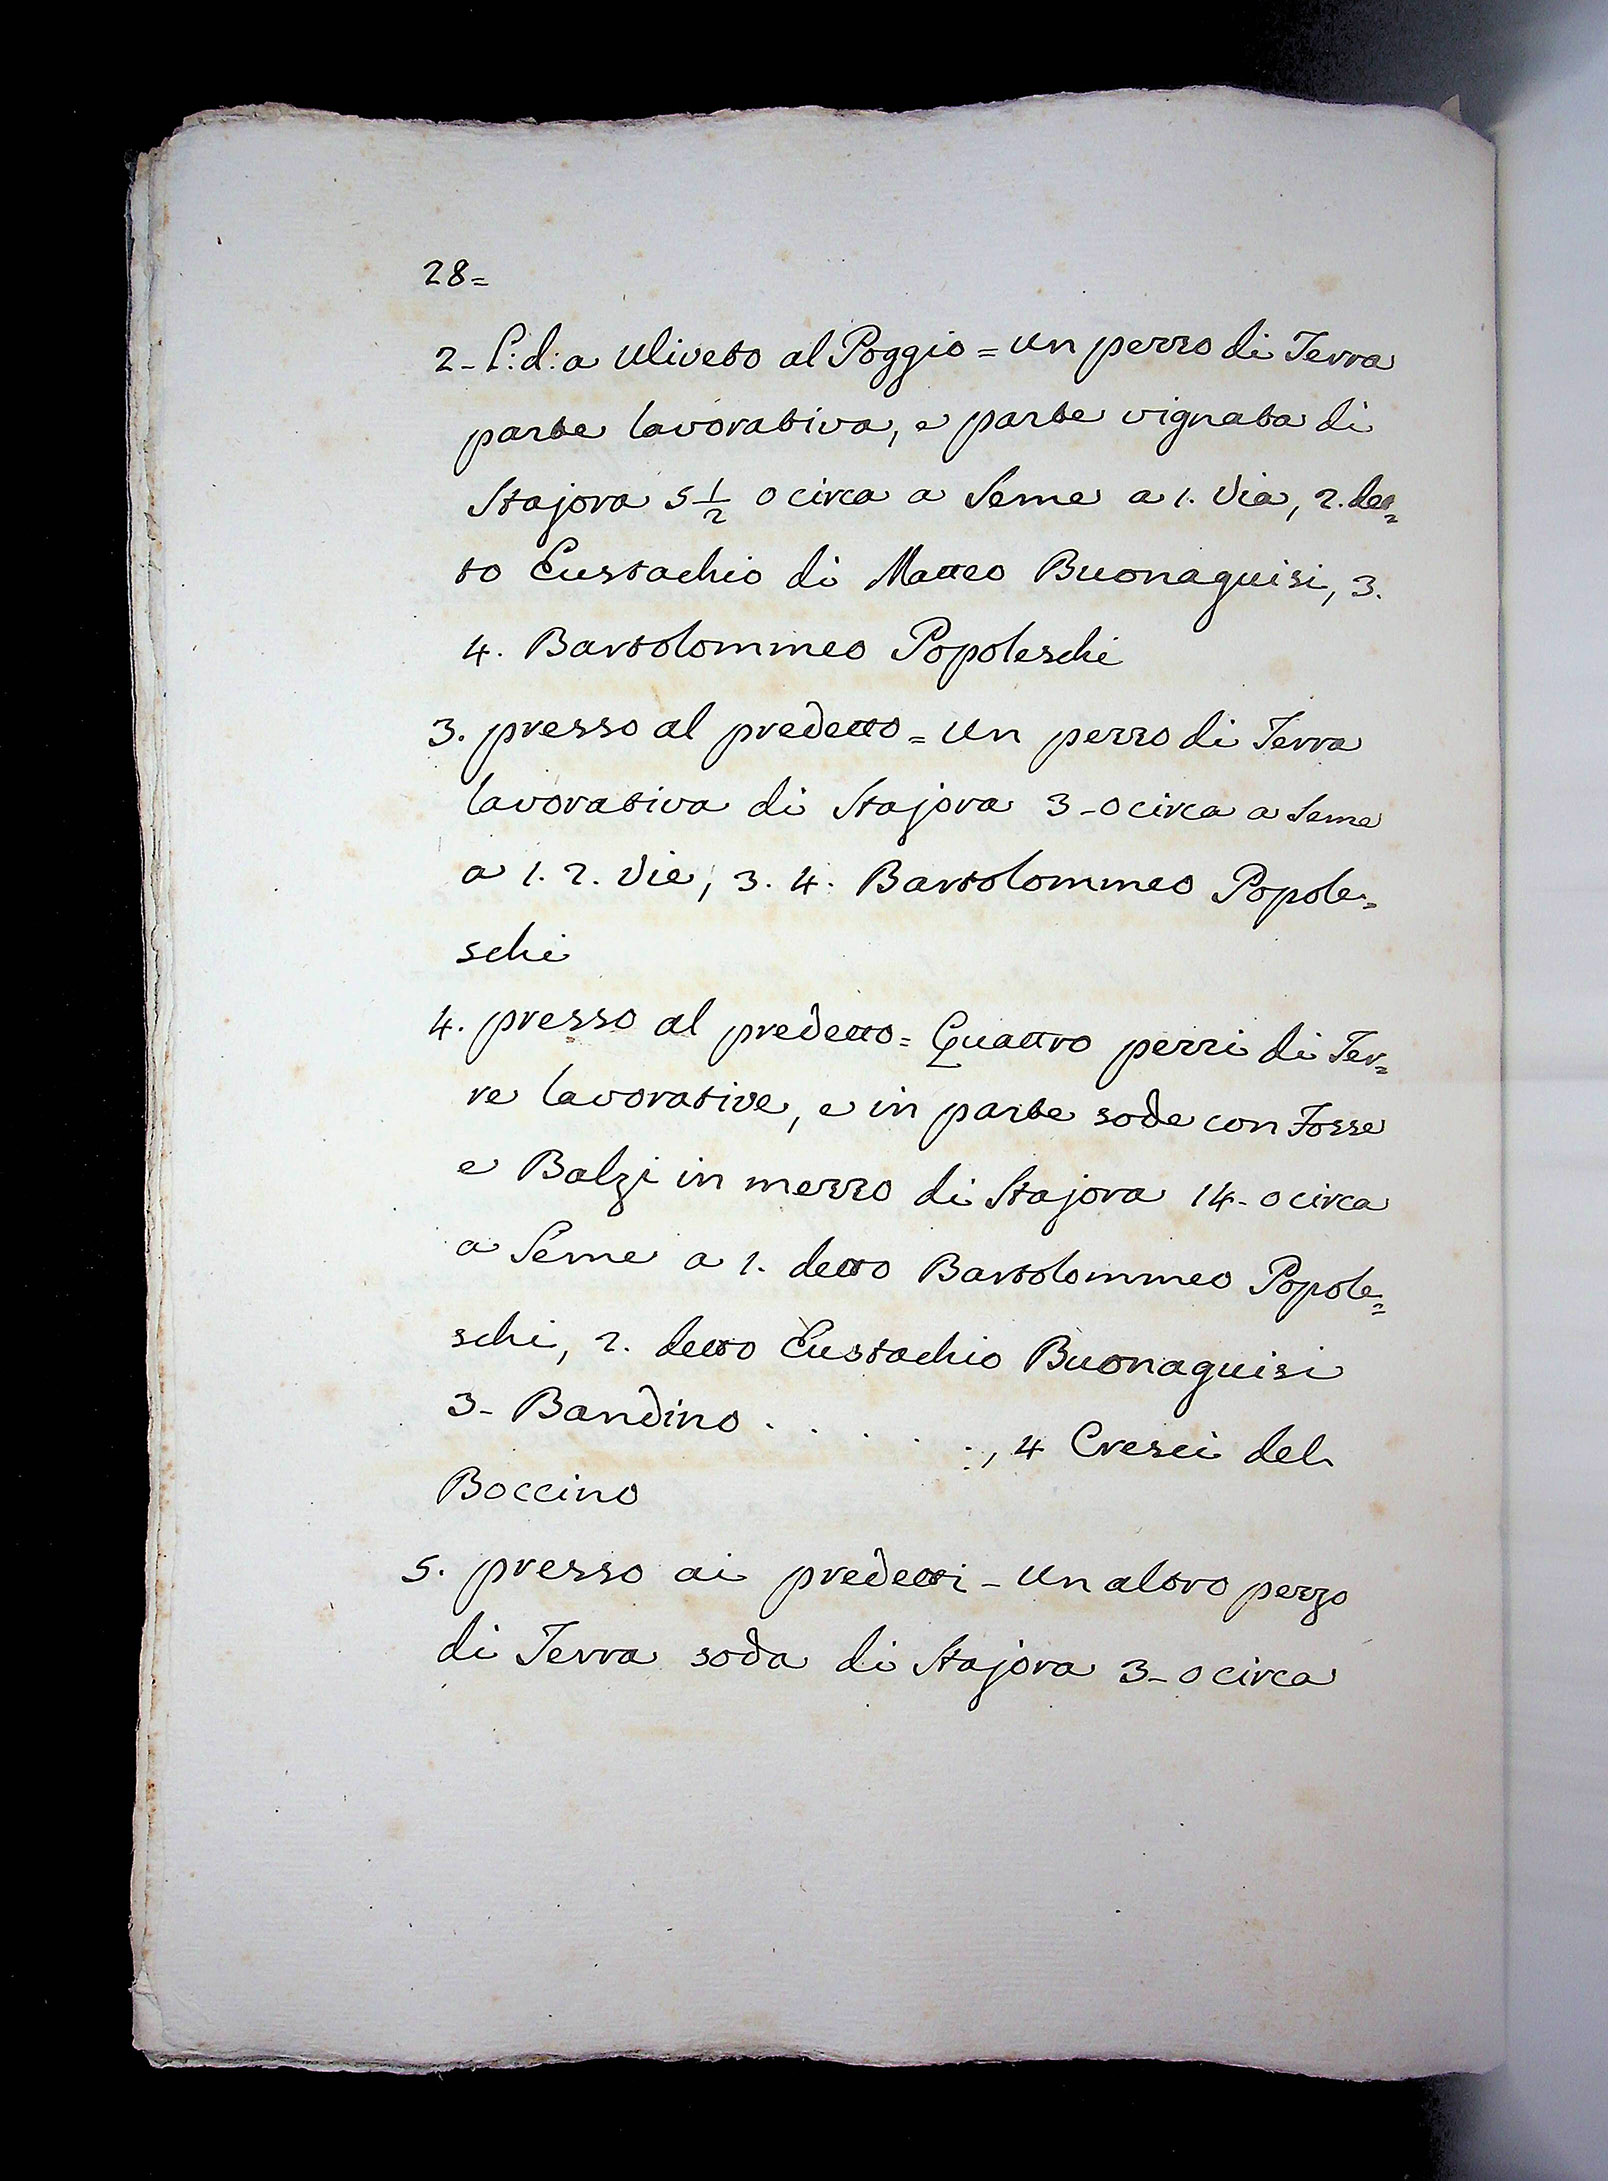 28=
2- L: d: a Uliveto al Poggio = Un pezzo di Terra
parte lavorativa, e parte vignata di
Stajora 5 1/2 o circa a Seme a 1. Via, 2. det=
to Eustachio di Matteo Buonaguisi, 3.
4. Bartolommeo Popoleschi
3. presso al predetto = Un pezzo di Terra
lavorativa di Stajora 3- o circa a Seme
a 1. 2. Vie, 3. 4. Bartolommeo Popole=
schi
4. presso al predetto = Quattro pezzi di Ter=
re lavorative, e in parte sode con Fosse
e Balzi in mezzo di Stajora 14- o circa
a Seme a 1. detto Bartolommeo Popole=
schi, 2. detto Eustachio Buonaguisi
3- Bandino . . . . . . , 4 Cresci del
Boccino
5. presso ai predetti - Un altro pezzo
di Terra soda di Stajora 3- o circa